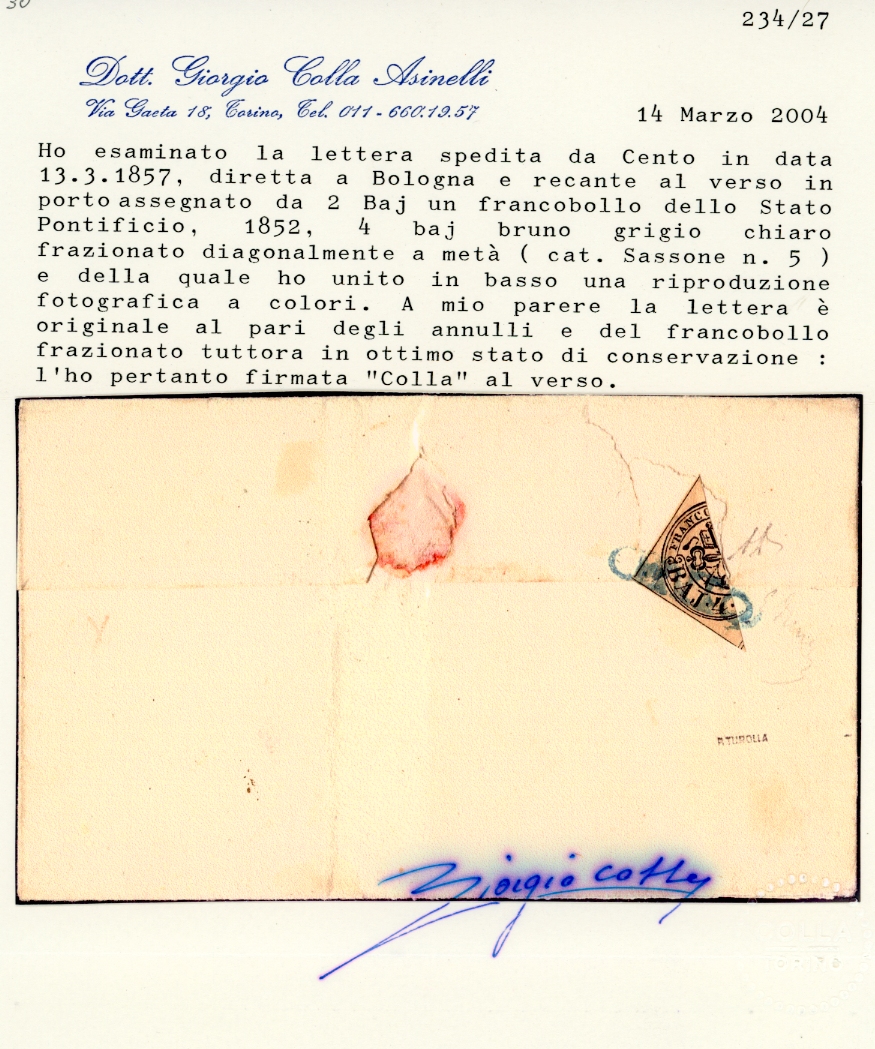 30
234/27
Dott. Giorgio Colla Asinelli
Via Gaeta 18, Torino, Tel. 011 - 660.19.57
14 Marzo 2004
Ho esaminato la lettera spedita da Cento in data
13.3.1857, diretta a Bologna e recante al verso in
porto assegnato da 2 Baj un francobollo dello Stato
Pontificio, 1852, 4 baj bruno grigio chiaro
frazionato diagonalmente a metà ( cat. Sassone n. 5 )
e della quale ho unito in basso una riproduzione
fotografica a colori. A mio parere la lettera è
originale al pari degli annulli e del francobollo
frazionato tuttora in ottimo stato di conservazione :
l'ho pertanto firmata "Colla" al verso.
FRANCO
BAJ. 4.
P. TUROLLA
Giorgio Colla